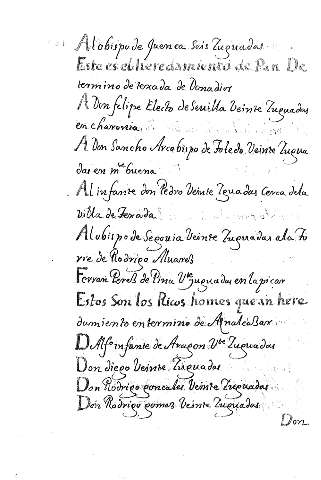 Al obispo de Quenca Seis Zuguadas
Este es el heredamiento de Pan De
termino de texada de Donadios
A Don felipe Electo de Sevilla Veinte Zuguadas
en charonia
A Don Sancho Arcobispo de Toledo Veinte Zugua
das en mte buena
Al infante don Pedro Veinte Zguadas Cerca dela
villa de Texada
Al obispo de Segouia Veinte Zuguadas ala To
rre de Rodrigo Aluares
Ferran Peres de Pina Vte juguadas en lapicar
Estos Son los Ricos homes que an here
damiento en termino de Asnalcasar
D Alfo infante de Aragon Vte Zuguadas
Don diego Veinte Zuguadas
Don Rodrigo gonzales Veinte Zuguadas
Don Rodrigo gomes Veinte Zuguadas
Don